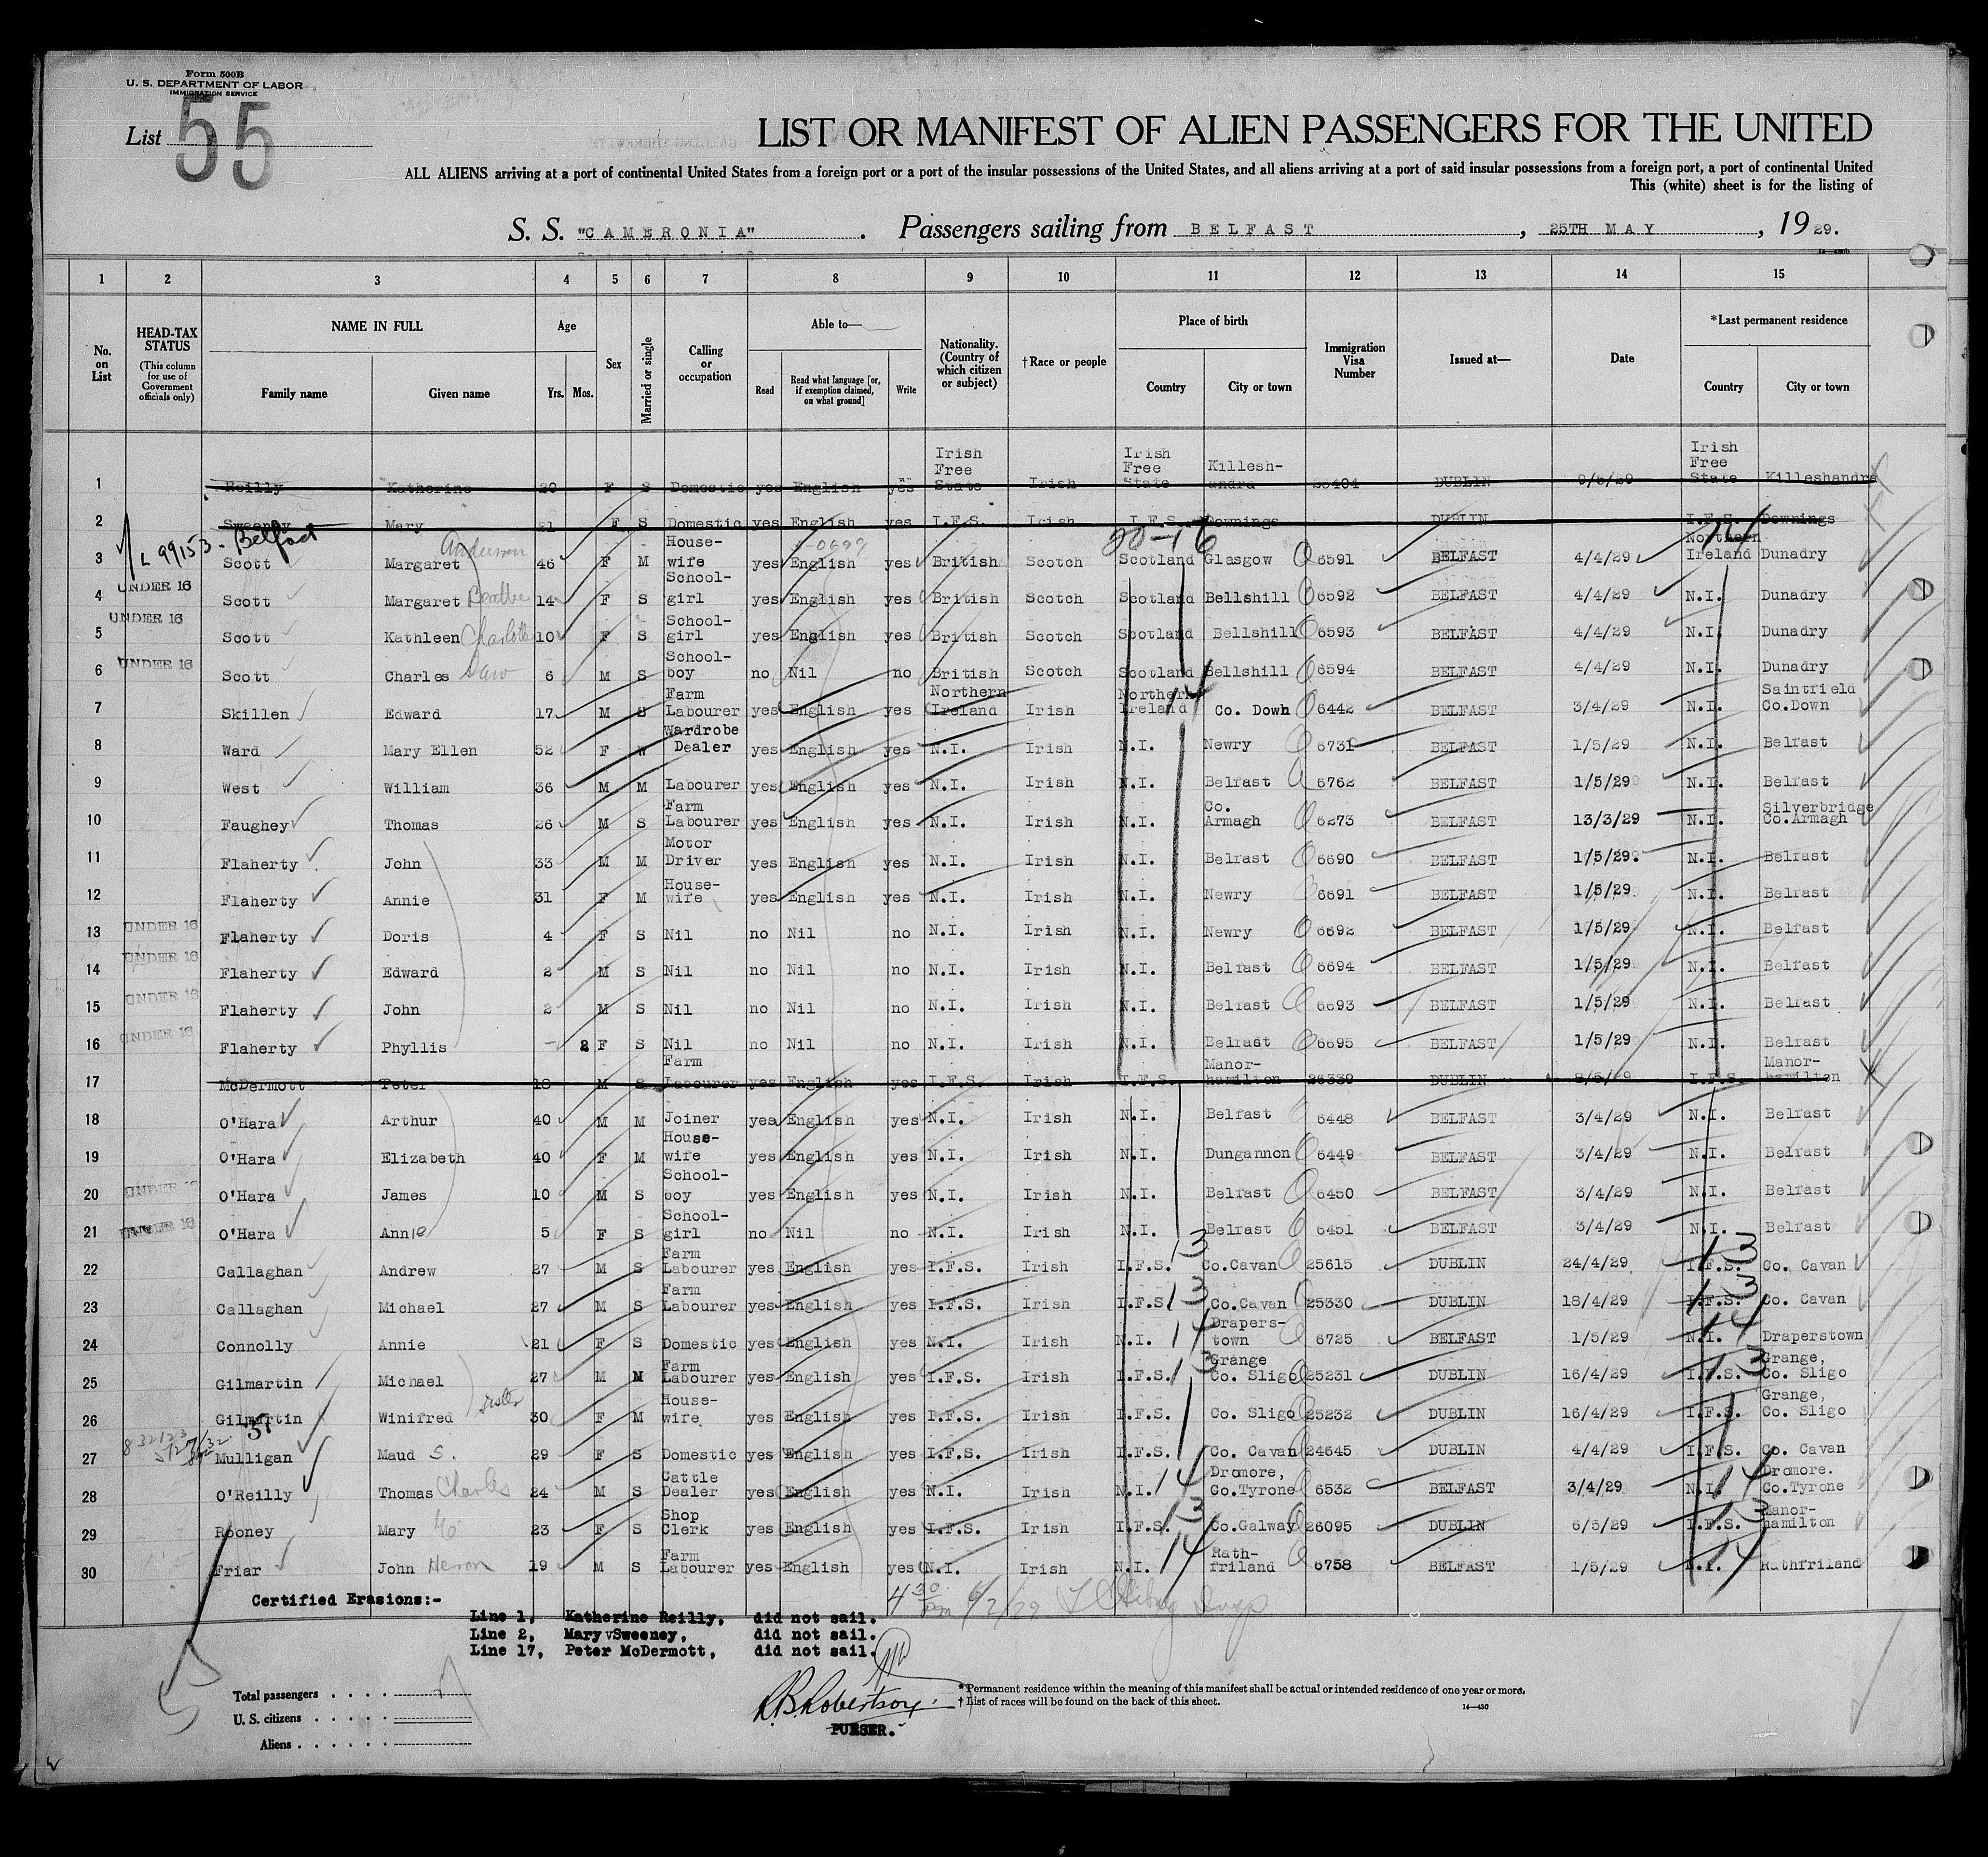 Form 500B
U. S. DEPARTMENT OF LABOR
IMMIGRATION SERVICE
List 55
LIST OR MANIFEST OF ALIEN PASSENGERS FOR THE UNITED
ALL ALIENS arriving at a port of continental United States from a foreign port or a port of the insular possessions of the United States, and all aliens arriving at a port of said insular possessions from a foreign port, a port of continental United
This (white) sheet is for the listing of
S. S. "CAMERONIA". Passengers sailing from BELFAST, 25TH MAY, 1929.
1 2 3 4 5 6 7 8 9 10 11 12 13 14 15
No. on List HEAD-TAX STATUS (This column for use of Government officials only) NAME IN FULL Family name Given name Age Yrs. Mos. Sex Married or single Calling or occupation Able to— Read Read what language [or, if exemption claimed, on what ground] Write Nationality. (Country of which citizen or subject) †Race or people Place of birth Country City or town Immigration Visa Number Issued at— Date *Last permanent residence Country City or town
1 Reilly Katherine 20 F S Domestic yes English yes Irish Free State Irish Irish Free State Killeshandra 26404 DUBLIN Irish Free State Killeshandra
2 Sweeney Mary 21 F S Domestic yes English yes I.F.S. Irish I.F.S. Downings DUBLIN I.F.S. Downings
L 99153 - Belfast 20-16 14
3 Scott Margaret Anderson 46 F M House-wife yes English yes British Scotch Scotland Glasgow 6591 BELFAST 4/4/29 Northern Ireland Dunadry
4 UNDER 16 Scott Margaret 14 F S School-girl yes English yes British Scotch Scotland Bellshill 6592 BELFAST 4/4/29 N.I. Dunadry
5 UNDER 16 Scott Kathleen Charlotte 10 F S School-girl yes English yes British Scotch Scotland Bellshill 6593 BELFAST 4/4/29 N.I. Dunadry
6 UNDER 16 Scott Charles 6 M S School-boy no Nil no British Scotch Scotland Bellshill 6594 BELFAST 4/4/29 N.I. Dunadry
7 Skillen Edward 17 M S Farm Labourer yes English yes Northern Ireland Irish Northern Ireland 14 Co. Down 6442 BELFAST 3/4/29 N.I. Saintfield Co.Down
8 Ward Mary Ellen 52 F W Wardrobe Dealer yes English yes N.I. Irish N.I. Newry 6731 BELFAST 1/5/29 N.I. Belfast
9 West William 36 M M Labourer yes English yes N.I. Irish N.I. Belfast 6762 BELFAST 1/5/29 N.I. Belfast
10 Faughey Thomas 26 M S Farm Labourer yes English yes N.I. Irish N.I. Co. Armagh 6273 BELFAST 13/3/29 N.I. Silverbridge Co.Armagh
11 Flaherty John 33 M M Motor Driver yes English yes N.I. Irish N.I. Belfast 6690 BELFAST 1/5/29 N.I. Belfast
12 Flaherty Annie 31 F M House-wife yes English yes N.I. Irish N.I. Newry 6691 BELFAST 1/5/29 N.I. Belfast
13 UNDER 16 Flaherty Doris 4 F S Nil no Nil no N.I. Irish N.I. Newry 6692 BELFAST 1/5/29 N.I. Belfast
14 UNDER 16 Flaherty Edward 2 M S Nil no Nil no N.I. Irish N.I. Belfast 6694 BELFAST 1/5/29 N.I. Belfast
15 UNDER 16 Flaherty John 2 M S Nil no Nil no N.I. Irish N.I. Belfast 6693 BELFAST 1/5/29 N.I. Belfast
16 UNDER 16 Flaherty Phyllis - 2 F S Nil no Nil no N.I. Irish N.I. Belfast 6695 BELFAST 1/5/29 N.I. Belfast
17 McDermott Peter 18 M S Farm Labourer yes English yes I.F.S. Irish I.F.S. Manor-hamilton 26339 DUBLIN I.F.S. Manor-hamilton
18 O'Hara Arthur 40 M M Joiner yes English yes N.I. Irish N.I. Belfast 6448 BELFAST 3/4/29 N.I. Belfast
19 O'Hara Elizabeth 40 F M House-wife yes English yes N.I. Irish N.I. Dungannon 6449 BELFAST 3/4/29 N.I. Belfast
20 UNDER 16 O'Hara James 10 M S School-boy yes English yes N.I. Irish N.I. Belfast 6450 BELFAST 3/4/29 N.I. Belfast
21 UNDER 16 O'Hara Annie 5 F S School-girl no Nil no N.I. Irish N.I. Belfast 6451 BELFAST 3/4/29 N.I. Belfast
22 Callaghan Andrew 27 M S Farm Labourer yes English yes I.F.S. Irish I.F.S. 13 Co.Cavan 25615 DUBLIN 24/4/29 I.F.S. 13 Co. Cavan
23 Callaghan Michael 27 M S Farm Labourer yes English yes I.F.S. Irish I.F.S. 13 Co.Cavan 25330 DUBLIN 18/4/29 I.F.S. 13 Co. Cavan
24 Connolly Annie 21 F S Domestic yes English yes N.I. Irish N.I. 14 Drapers-town 6725 BELFAST 1/5/29 N.I. 14 Draperstown
25 Gilmartin Michael 27 M M Farm Labourer yes English yes I.F.S. Irish I.F.S. 13 Grange Co. Sligo 25231 DUBLIN 16/4/29 I.F.S. 13 Grange, Co. Sligo
26 Gilmartin Winifred sister 30 F M House-wife yes English yes I.F.S. Irish I.F.S. Co. Sligo 25232 DUBLIN 16/4/29 I.F.S. Grange, Co. Sligo
27 Mulligan Maud S. 29 F S Domestic yes English yes I.F.S. Irish I.F.S. Co. Cavan 24645 DUBLIN 4/4/29 I.F.S. Co. Cavan
28 O'Reilly Thomas Charles 24 M S Cattle Dealer yes English yes N.I. Irish N.I. 14 Dromore, Co.Tyrone 6532 BELFAST 3/4/29 N.I. 14 Dromore. Co.Tyrone
29 Rooney Mary 23 F S Shop Clerk yes English yes I.F.S. Irish I.F.S. 13 Co.Galway 26095 DUBLIN 6/5/29 I.F.S. 13 Manor-hamilton
30 Friar John Heron 19 M S Farm Labourer yes English yes N.I. Irish N.I. 14 Rath-friland 6758 BELFAST 1/5/29 N.I. 14 Rathfriland
Certified Erasions:-
Line 1, Katherine Reilly, did not sail.
Line 2, Mary Sweeney, did not sail.
Line 17, Peter McDermott, did not sail.
Total passengers
U. S. citizens
Aliens
R.B. Robertson.
PURSER.
*Permanent residence within the meaning of this manifest shall be actual or intended residence of one year or more.
†List of races will be found on the back of this sheet.
14—430